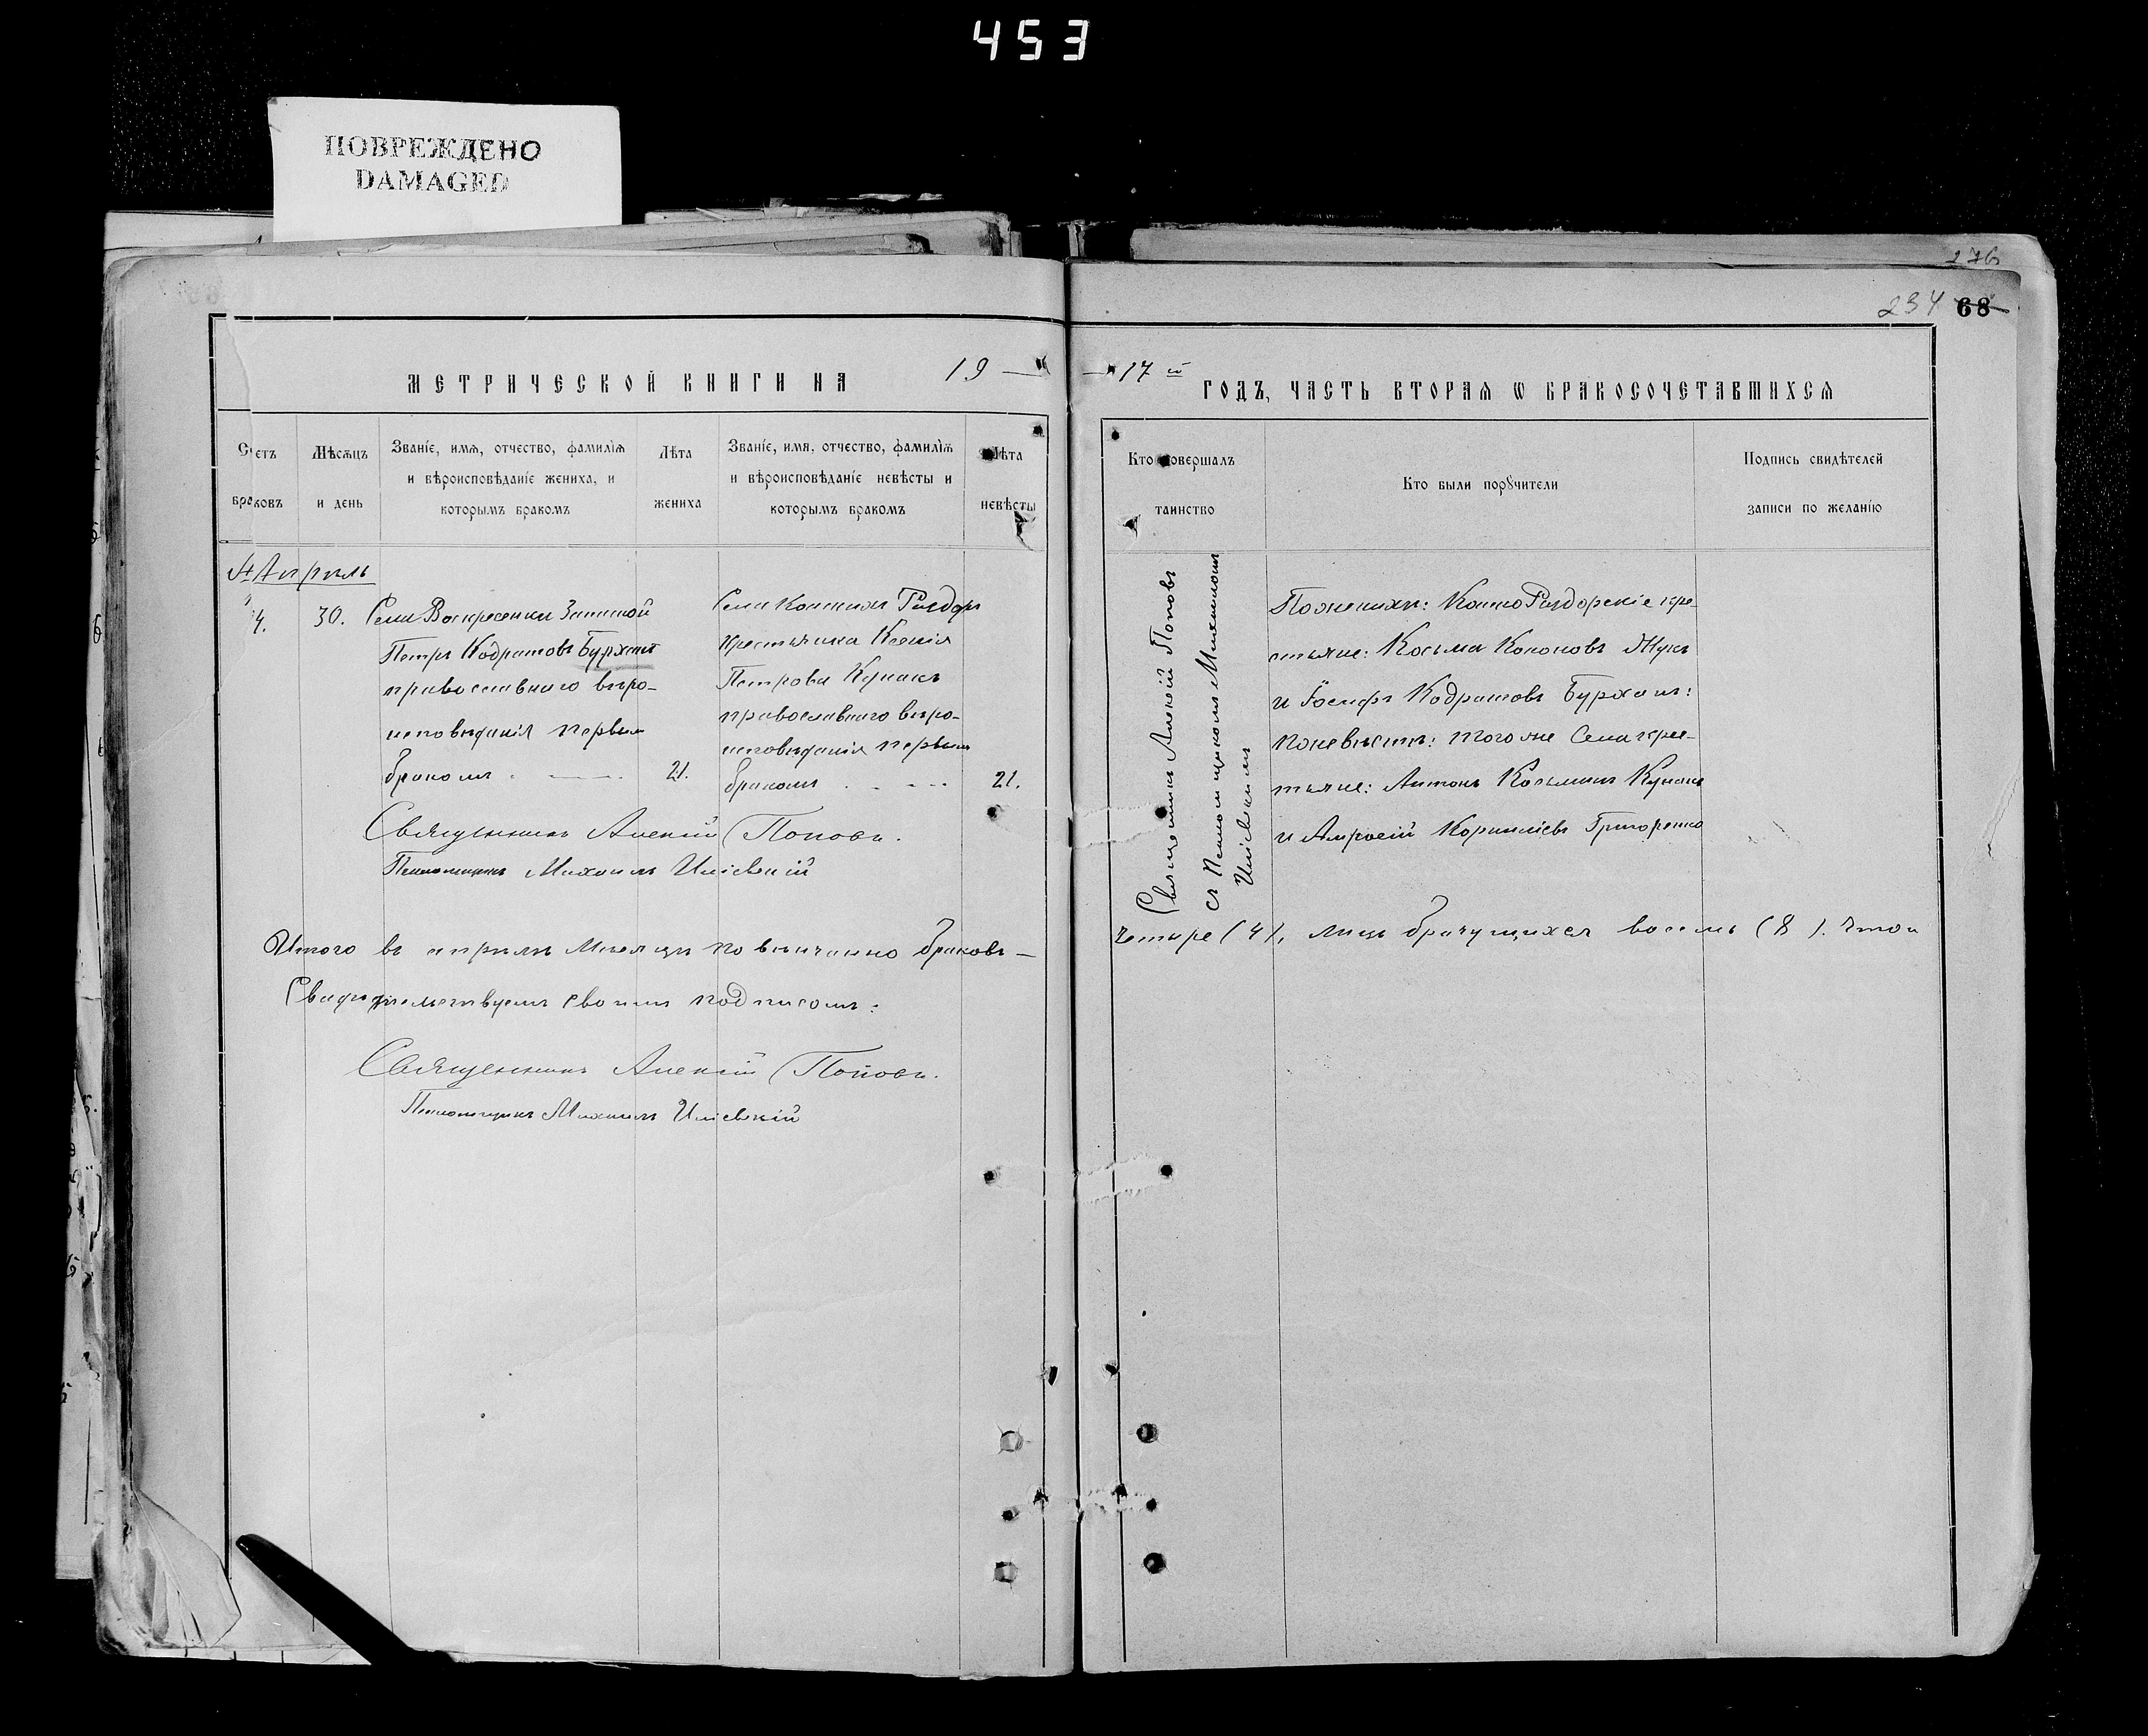 453
ПОВРЕЖДЕНО
DAMAGED
276
234 68
МЕТРИЧЕСКОЙ КНИГИ НА 19 —
— 17 й ГОДЪ, ЧАСТЬ ВТОРАЯ Ѡ БРАКОСОЧЕТАВШИХСЯ
Счетъ
браковъ
Мѣсяцъ
и день
Званіе, имя, отчество, фамилія
и вѣроисповѣданіе жениха, и
которымъ бракомъ
Лѣта
жениха
Званіе, имя, отчество, фамилія
и вѣроисповѣданіе невѣсты и
которымъ бракомъ
Лѣта
невѣсты
Кто совершалъ
таинство
Кто были поручители
Подпись свидѣтелей
записи по желанію
Апрель
4.
30.
Села Воскресенки Запасной
Петръ Кодратовъ Бурхан
православнаго вѣро-
исповѣданія первым
бракомъ . —
21.
Села Конскихъ Раздоръ
крестьянка Ксенія
Петрова Кунакъ
православнаго вѣро-
исповѣданія первымъ
бракомъ . - - -
21.
Священникъ Алексій Поповъ
съ Псаломщикомъ Михаиломъ
Иліевскимъ
По женихѣ: Конско Раздорскіе кре-
стьяне: Косьма Кононовъ Жукъ
и Іосифъ Кодратовъ Бурхан:
по невѣстѣ: того же Села крес-
тьяне: Антонъ Косьминъ Кунакъ
и Амросій Корниліевъ Григоренко
Священникъ Алексій Поповъ.
Псаломщикъ Михаилъ Иліевскій
Итого въ апрѣлѣ мѣсяцѣ повѣнчанно браковъ —
четыре (4), лицъ брачущихся восемь (8). Что и
Свидѣтельствуемъ своимъ подписомъ:
Священникъ Алексій Поповъ.
Псаломщикъ Михаилъ Иліевскій